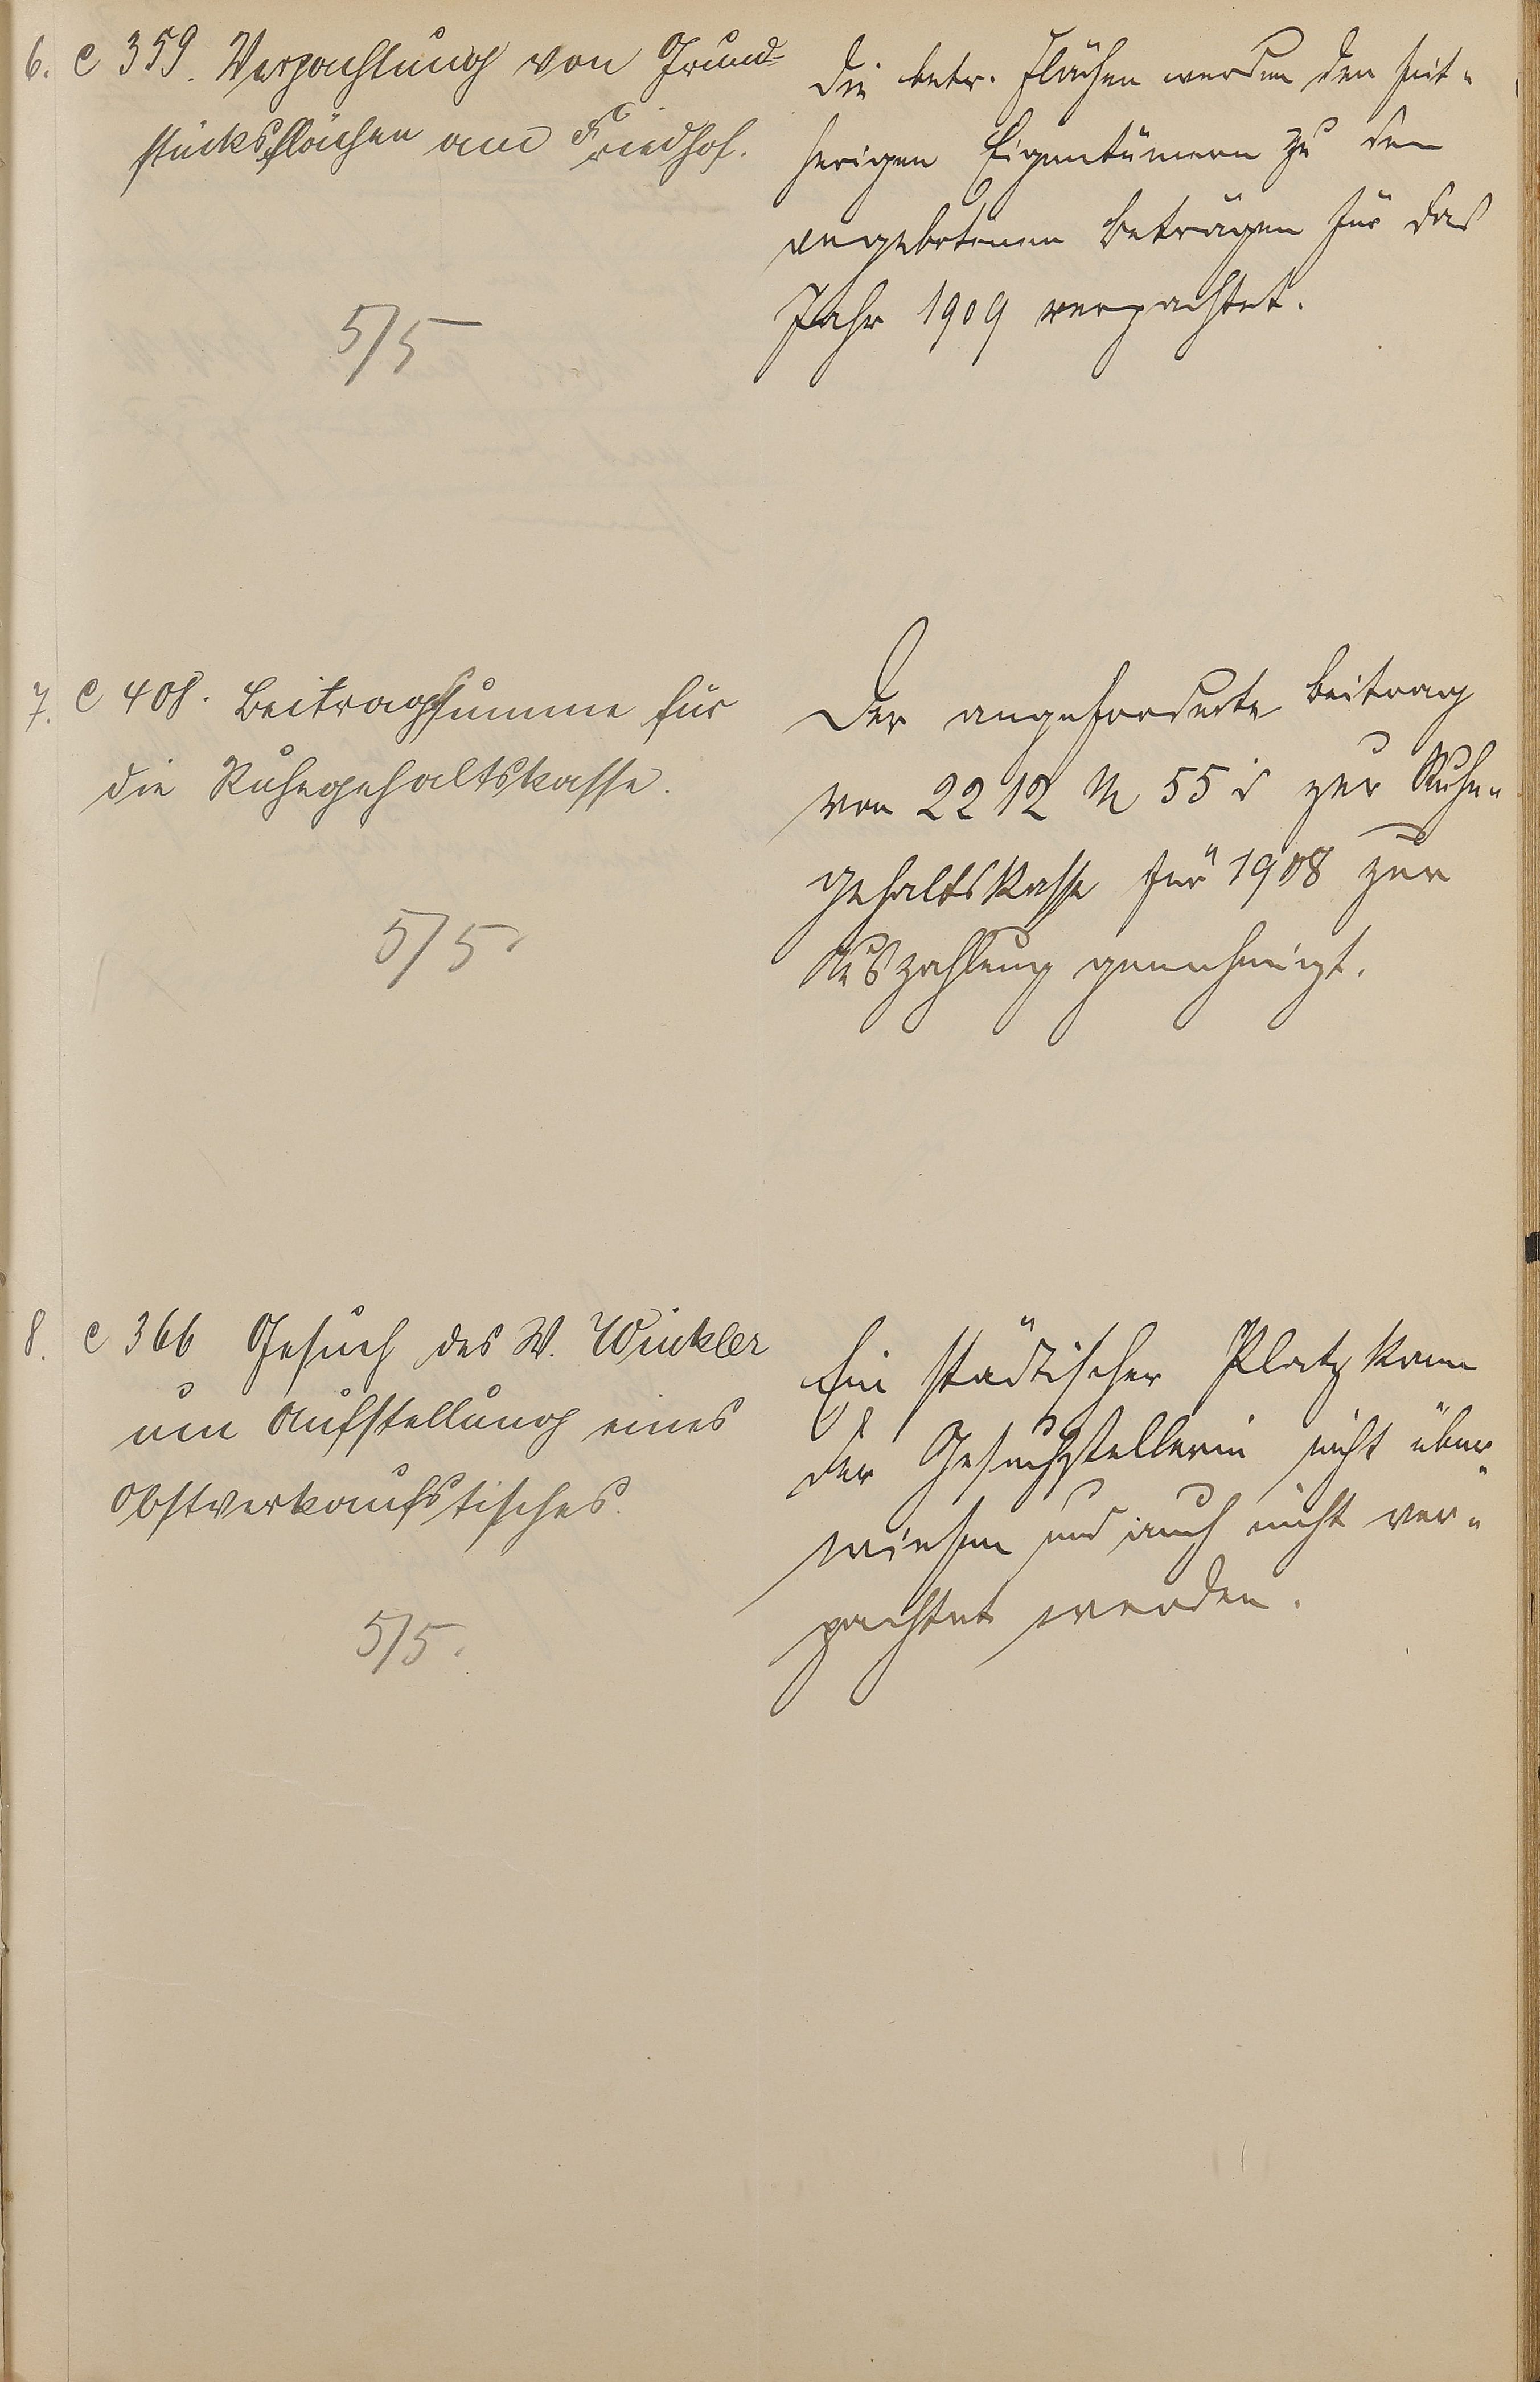 6. C 359. Verpachtung von Grund-
stücksflächen am Friedhof.
5/5
Die betr. Flächen werden den seit-
herigen Eigentümern zu den
angebotenen Beträgen für das
Jahr 1909 verpachtet.
7. C 408. Beitragssumme für
die Ruhegehaltskasse.
5/5.
Der angeforderte Beitrag
von 2212 M 55 d zur Ruhe-
gehaltskasse für 1908 zur
Auszahlung genehmigt.
8. C 366 Gesuch des W. Winkler
um Aufstellung eines
Obstverkaufstisches.
5/5.
Ein städtischer Platz kann
der Gesuchstellerin nicht über-
wiesen und auch nicht ver-
pachtet werden.